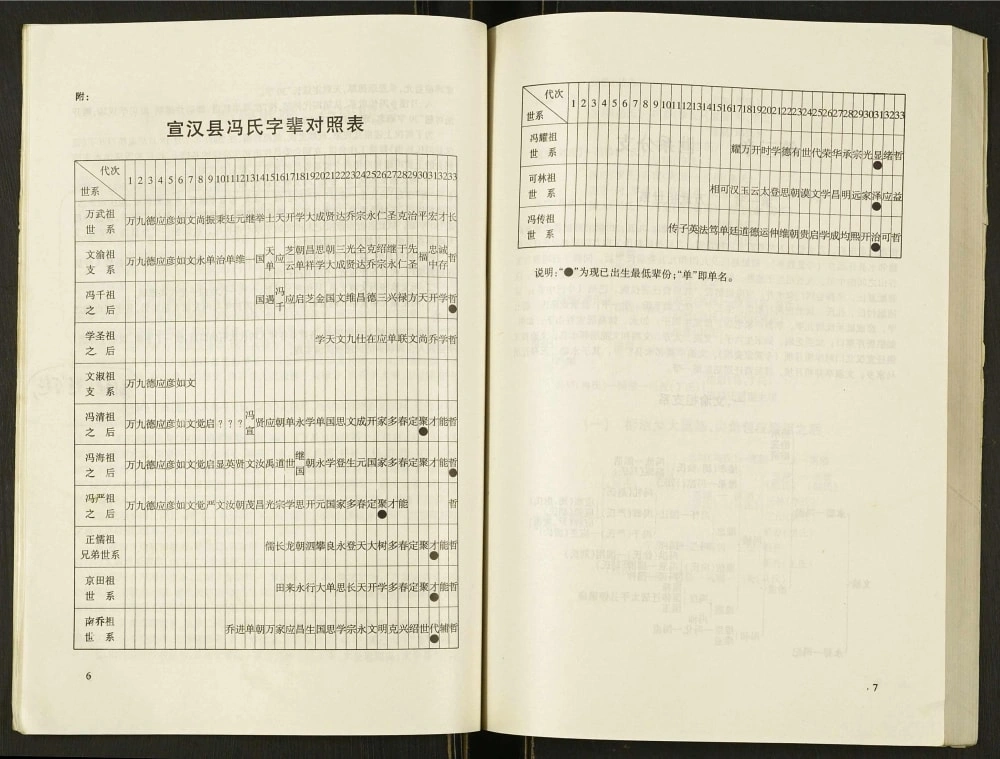 附：
宣汉县冯氏字辈对照表
代次 1 2 3 4 5 6 7 8 9 10 11 12 13 14 15 16 17 18 19 20 21 22 23 24 25 26 27 28 29 30 31 32 33
世系
万武祖 世系 万九德应彦如文尚振秉廷元继举士天开学大成贤达乔宗永仁圣克治平宏才长
天 芝朝昌思朝三光全克绍继于先 忠诚
文渝祖 支系 万九德应彦如文永单治单维一国 应 福 哲
单 云单祥学大成贤达乔宗永仁圣 中存
冯千祖 之后 国遇冯千应启芝金国文维昌德三兴禄方天开学哲
学圣祖 之后 学天文九仕在应单联文尚乔学哲
文淑祖 支系 万九德应彦如文
冯清祖 之后 万九德应彦如文觉启???冯宣贤应朝单永学单国思文成开家多春定聚才能哲
冯海祖 之后 万九德应彦如文觉启显英贤文汝禹道世继国朝永学登生元国家多春定聚才能哲
冯严祖 之后 万九德应彦如文觉严文汝朝茂昌光宗学思开元国家多春定聚才能 哲
正儒祖 兄弟世系 儒长龙朝泗攀良永登天大树多春定聚才能哲
京田祖 世系 田来永行大单思长天开学多春定聚才能哲
南乔祖 世系 乔进单朝万家应昌生国思学宗永文明克兴绍世代辅哲
6
代次 1 2 3 4 5 6 7 8 9 10 11 12 13 14 15 16 17 18 19 20 21 22 23 24 25 26 27 28 29 30 31 32 33
世系
冯耀祖 世系 耀万开时学德有世代荣华承宗光显绪哲
可林祖 世系 相可汉玉云太登思朝谟文学昌明远家泽应益
冯传祖 世系 传子英法笃单廷道德运仲维朝贵启学成均熙开治可哲
说明：“●”为现已出生最低辈份；“单”即单名。
7